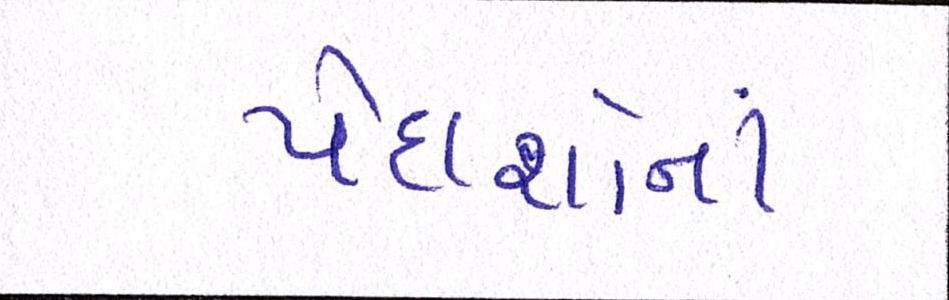 પેદાશોનાં